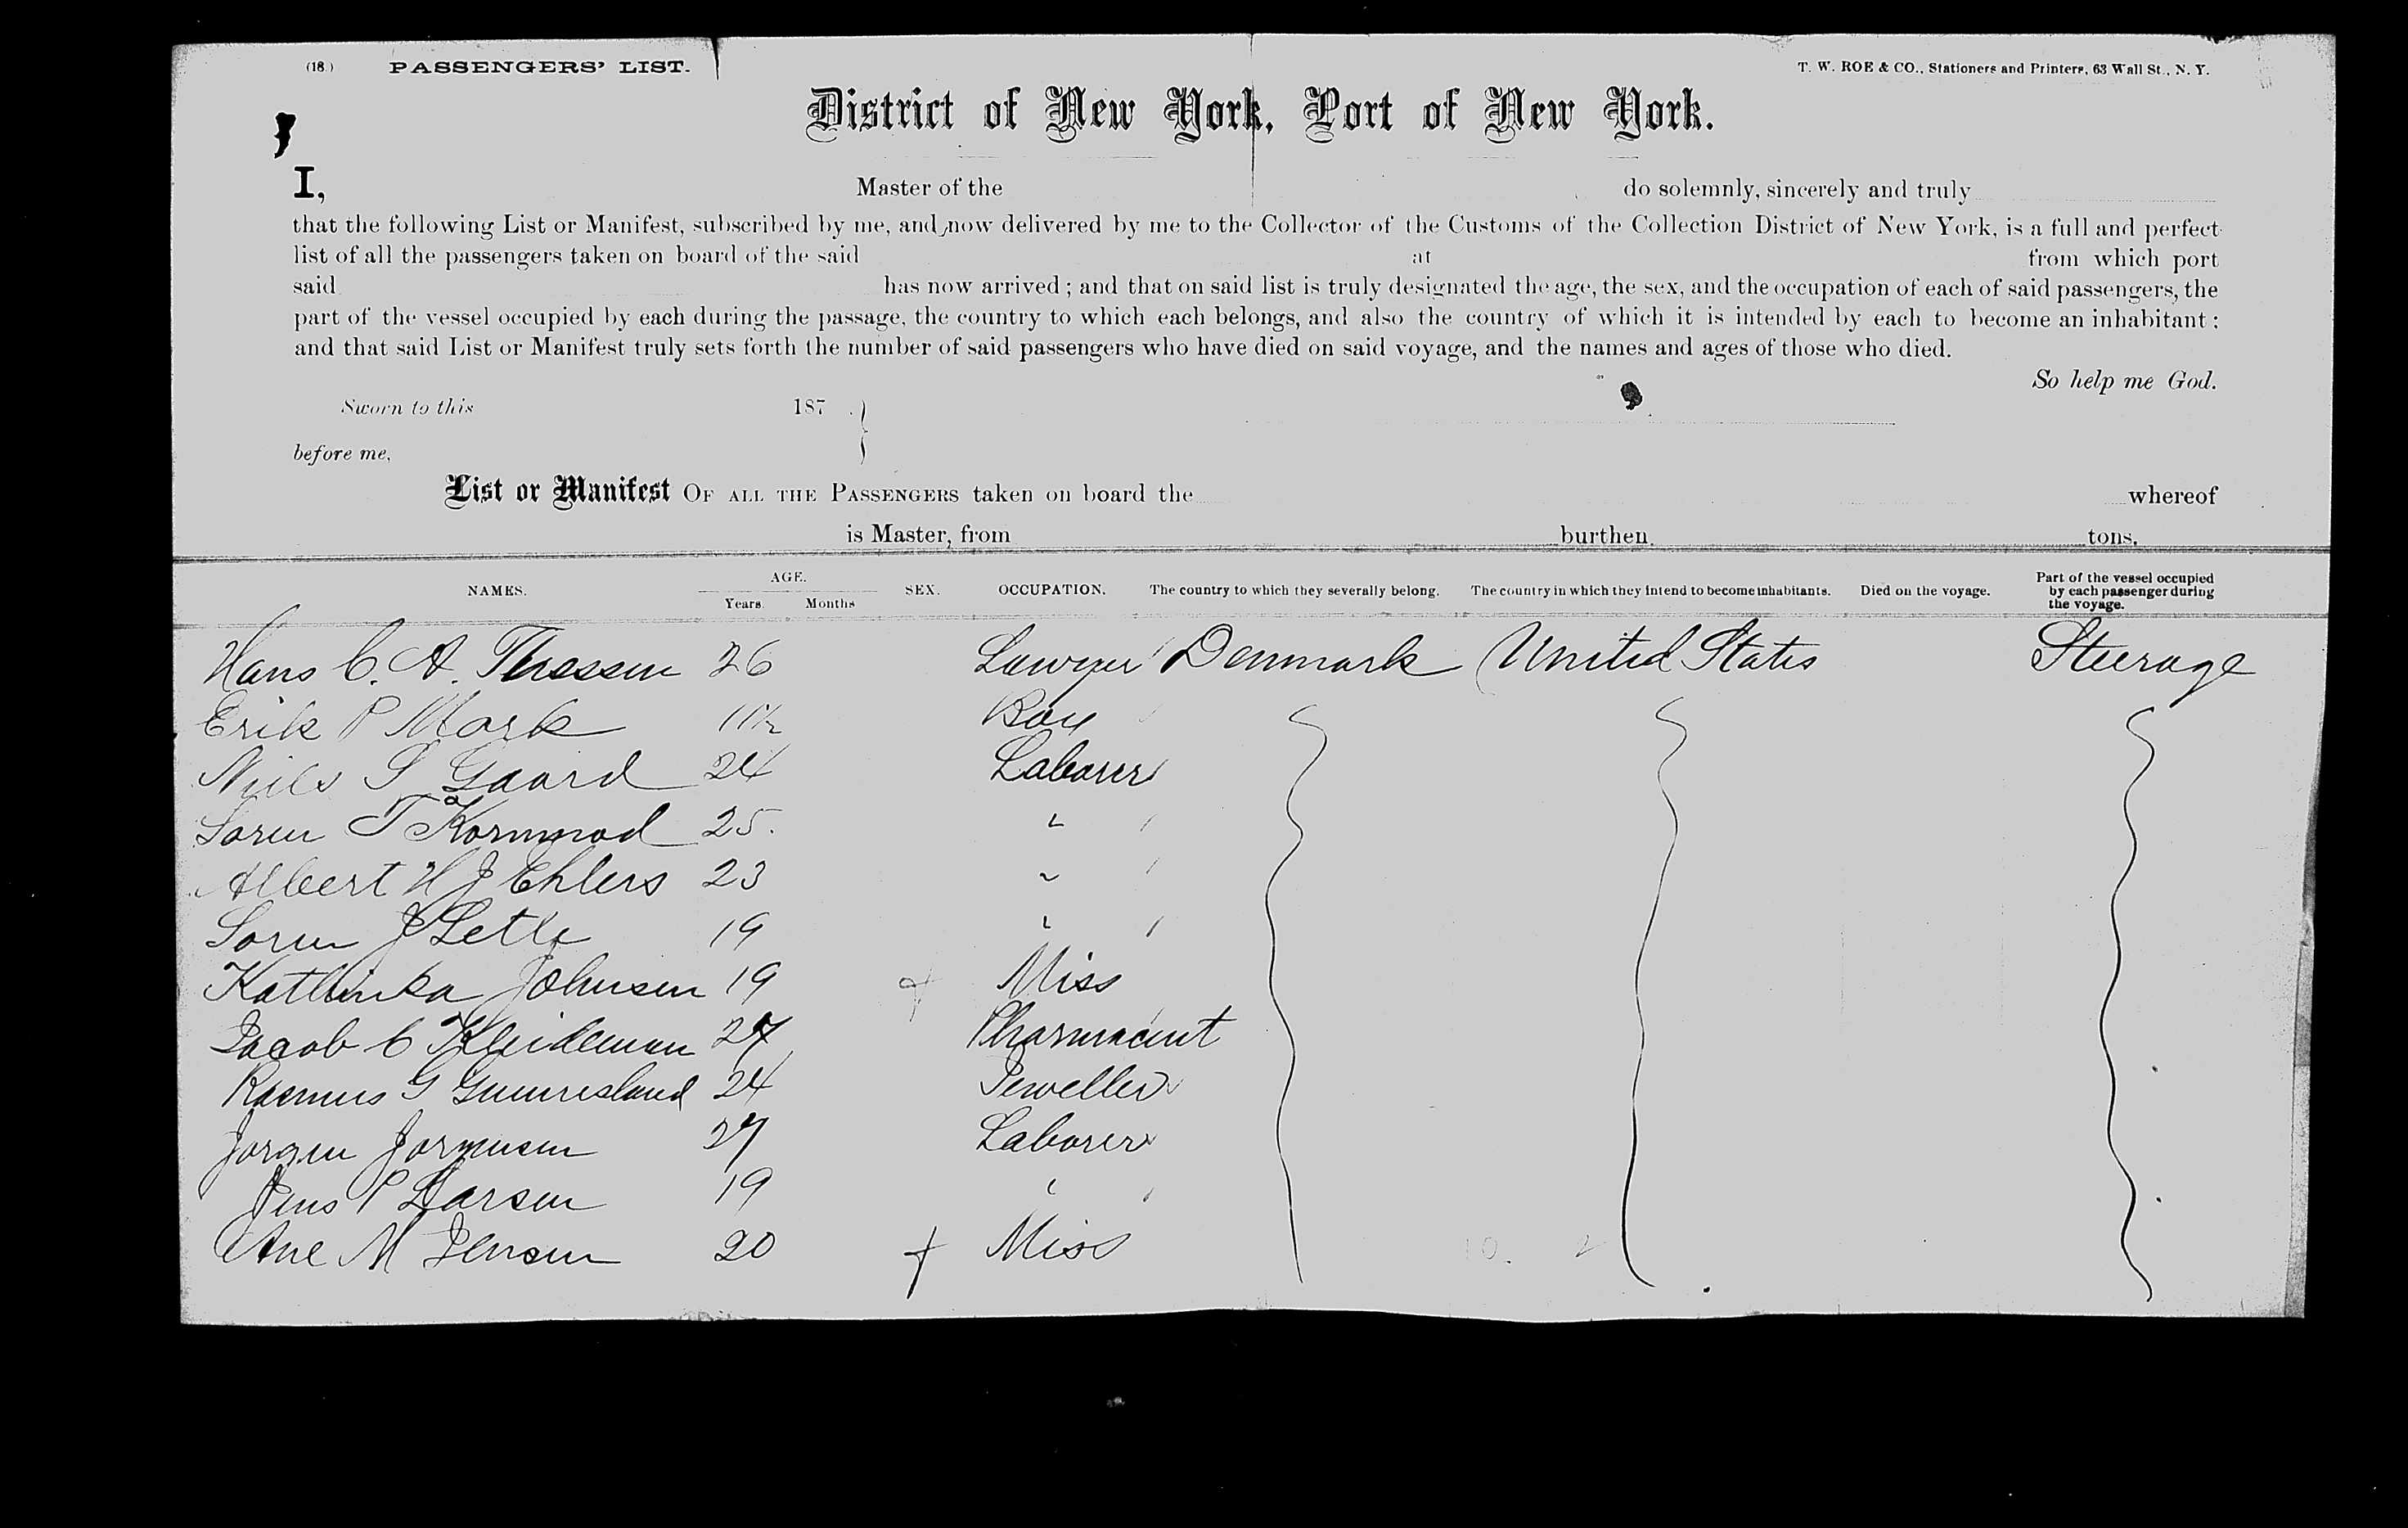 (18.) PASSENGERS' LIST. T. W. ROE & CO., Stationers and Printers, 63 Wall St., N. Y.
District of New York, Port of New York.
I, Master of the do solemnly, sincerely and truly
that the following List or Manifest, subscribed by me, and now delivered by me to the Collector of the Customs of the Collection District of New York, is a full and perfect
list of all the passengers taken on board of the said at from which port
said has now arrived; and that on said list is truly designated the age, the sex, and the occupation of each of said passengers, the
part of the vessel occupied by each during the passage, the country to which each belongs, and also the country of which it is intended by each to become an inhabitant;
and that said List or Manifest truly sets forth the number of said passengers who have died on said voyage, and the names and ages of those who died.
So help me God.
Sworn to this 187
before me,
List or Manifest OF ALL THE PASSENGERS taken on board the whereof
is Master, from burthen tons.
NAMES. AGE. Years. Months SEX. OCCUPATION. The country to which they severally belong. The country in which they intend to become inhabitants. Died on the voyage. Part of the vessel occupied by each passenger during the voyage.
Hans C. A. 26 Lawyer Denmark United States Steerage
Erik P Mark 11½ Boy
Niels S Gaard 24 Laborer
Soren T 25.
Albert H J Ehlers 23
Soren J 19
Kathinka Johnsen 19 Miss
Jacob C 27
Rasmus G 24 Jeweller
Jorgen Jorgensen 27 Laborer
Jens P Larsen 19
Ane M Jensen 20 Miss